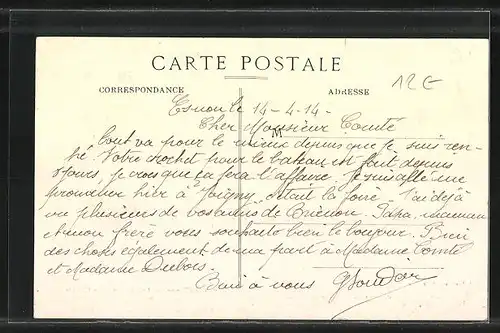 CARTE POSTALE
CORRESPONDANCE
ADRESSE
12 €
Esnon le 14-4-14-
Cher Monsieur Comté
M
tout va pour le mieux depuis que je suis ren-
tré. Votre crochet pour le bateau est fait depuis
8 jours, je crois que ça fera l'affaire. Je suis allé me
promener hier à Joigny c'était la foire. J'ai déjà
vu plusieurs de vos amis de Brienon. Papa, maman
et mon frère vous souhaite bien le bonjour. Bien
des choses également de ma part à Madame Comté
et Madame Dubois.
Bien à vous